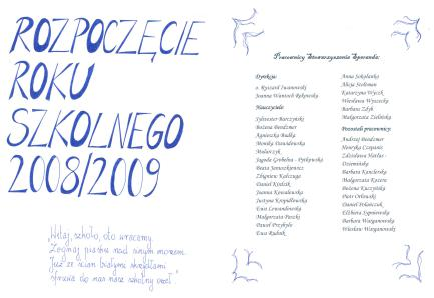 ROZPOCZĘCIE
ROKU
SZKOLNEGO
2008/2009
Witaj, szkoło, oto wracamy.
Żegnaj piasku nad sinym morzem.
Już ze ścian białymi skrzydłami
nasz szkolny orzeł."
Pracownicy Stowarzyszenia Szaranda:
Dyrekcja:
o. Ryszard Iwanowski
Joanna Wantoch-Rekowska
Nauczyciele:
Sylwester Barczyński
Bożena Bendzmer
Agnieszka Budka
Monika Dawidowska
Malarczyk
Jagoda Grobelna - Pytkowska
Beata Januszkiewicz
Zbigniew Kalczuga
Daniel Koźdik
Joanna Kowalewska
Justyna Kropidłowska
Ewa Lewandowska
Małgorzata Paszki
Paweł Przybyło
Ewa Rudnik
Anna Sokołowska
Alicja Szołman
Katarzyna Wyczk
Wiesława Wysiecka
Barbara Zdyb
Małgorzata Zielińska
Pozostali pracownicy:
Andrzej Bendzmer
Henryka Czapanis
Zdzisława Marlus -
Dzimińsky
Barbara Kanclerska
Małgorzata Kuzera
Bożena Kuczyńska
Piotr Orłowski
Daniel Polańczuk
Elżbieta Szpniewska
Barbara Wiązanowska
Wiesław Wiązanowski